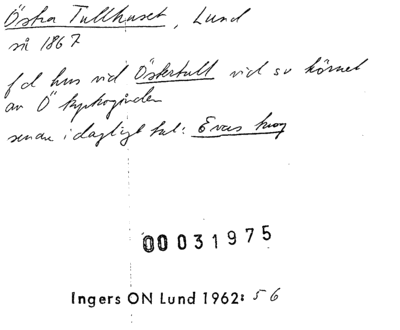 Östra Tullhuset, Lund
på 1867
f d hus vid Östertull vid sv hörnet
av Ö kyrkogården
senare i dagligt tal: Evas krog
00031975
Ingers ON Lund 1962: 56